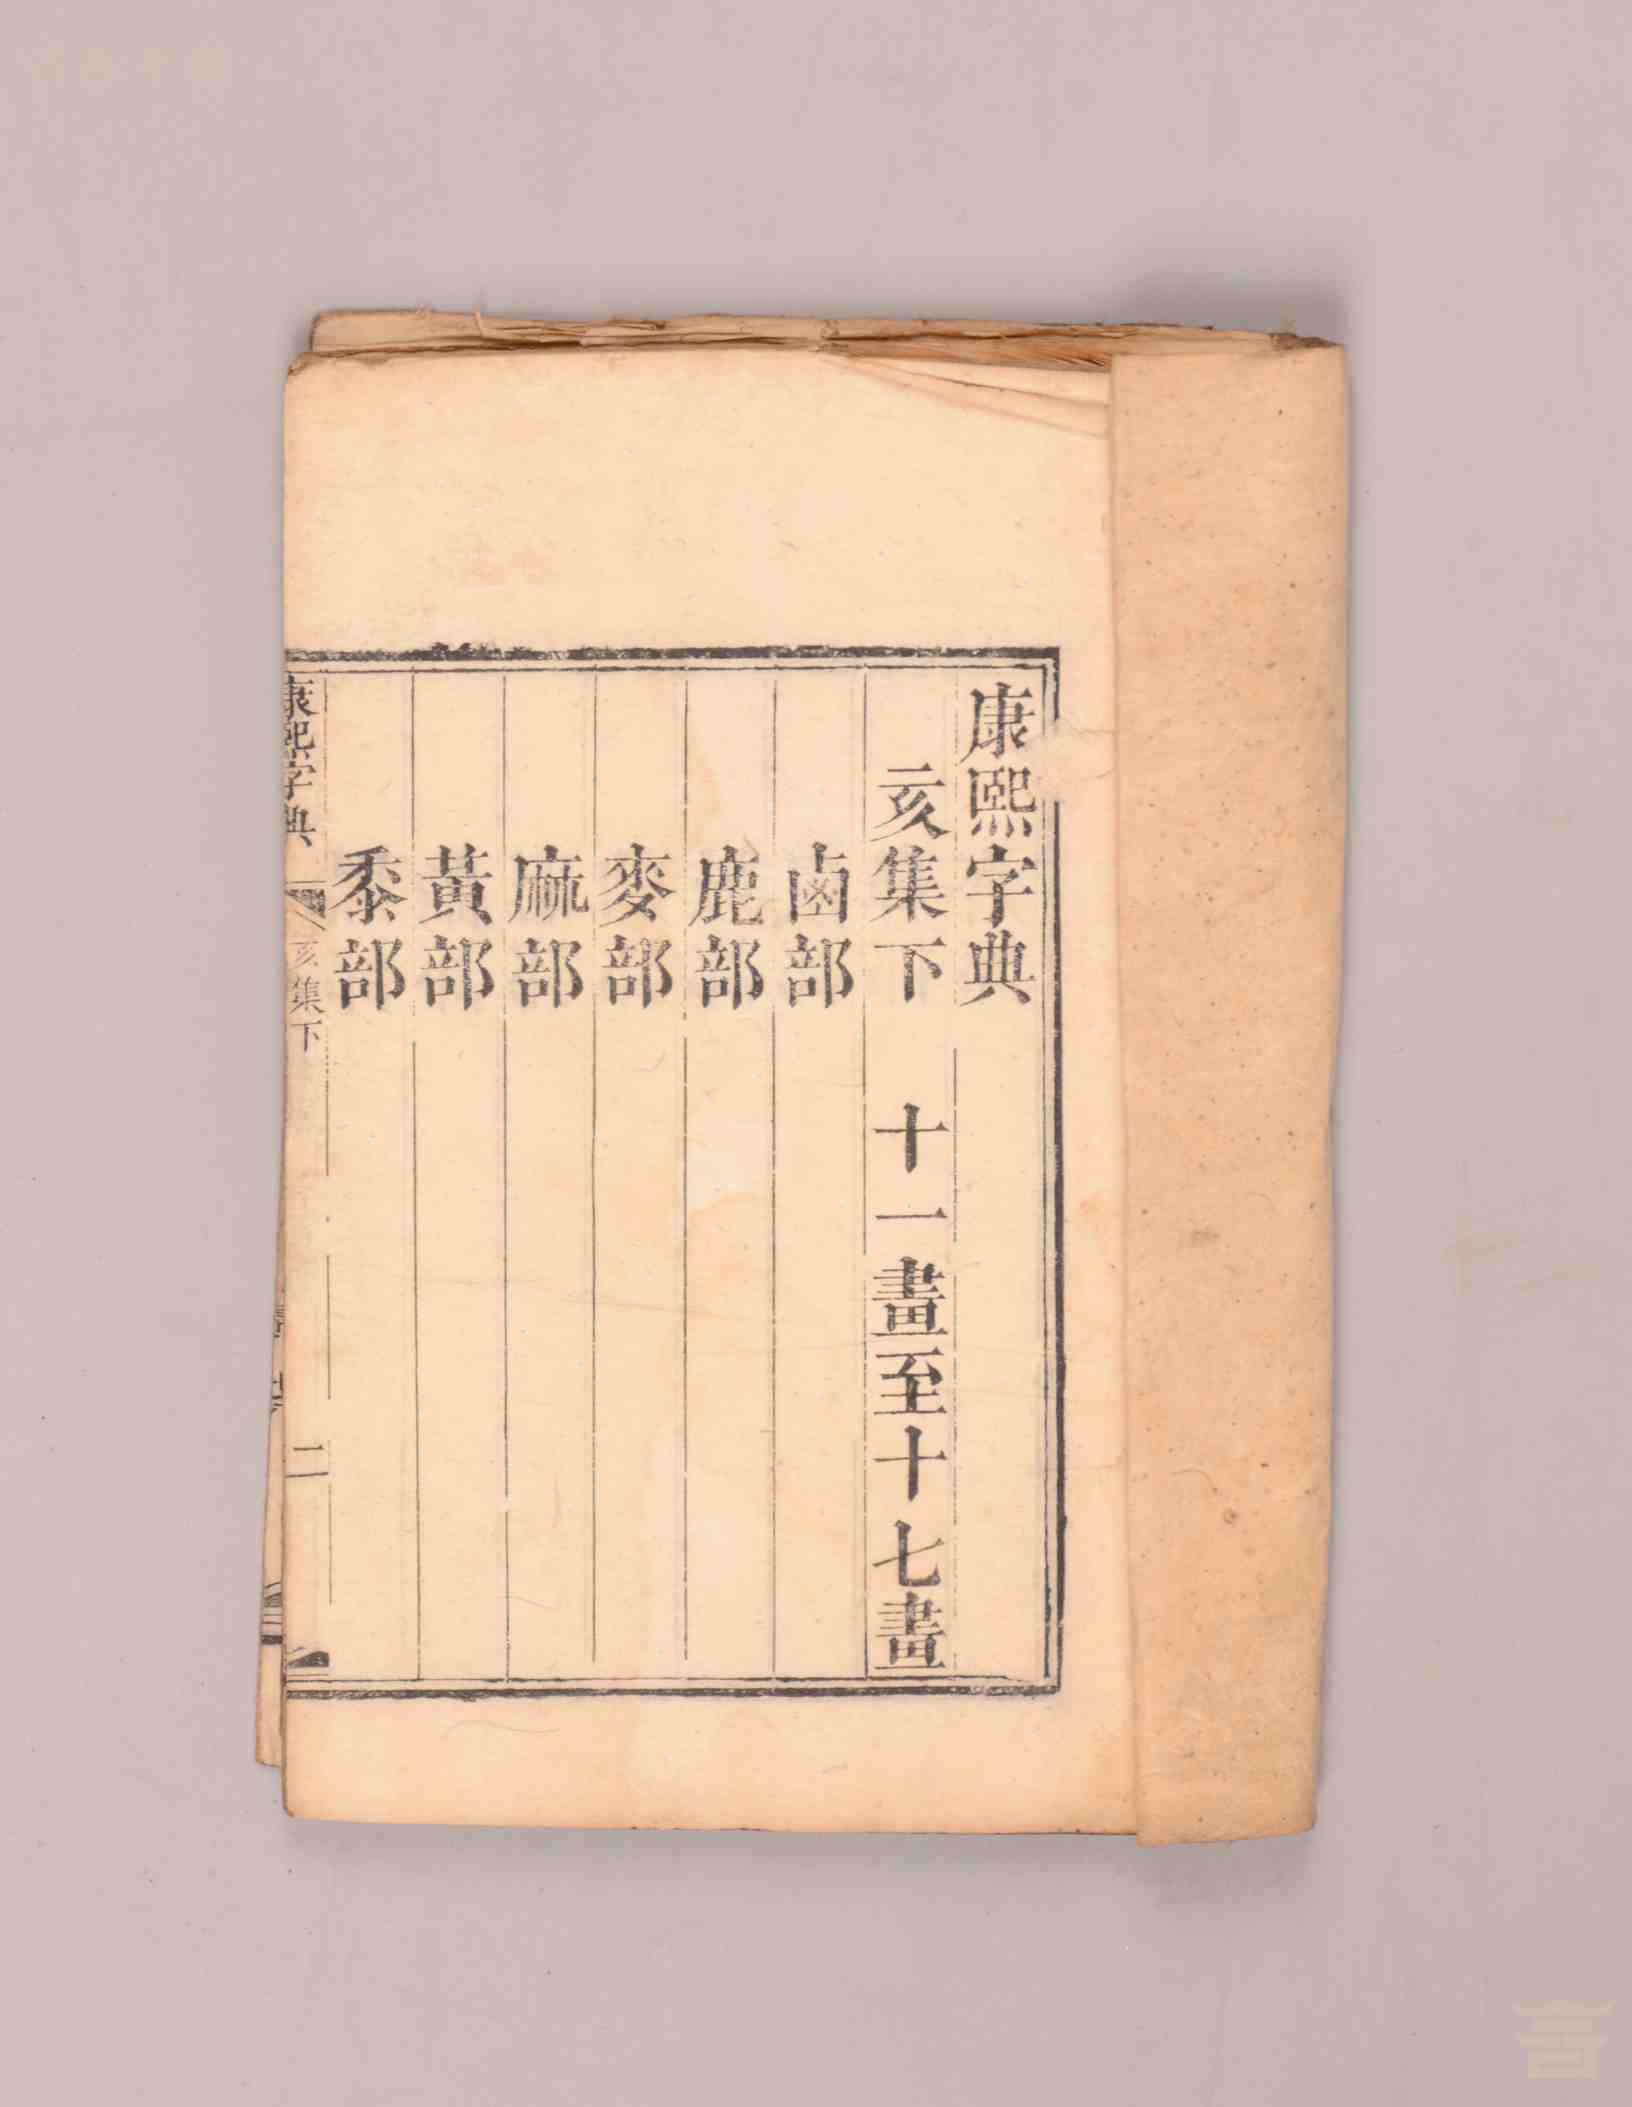 康熙字典
亥集下　十一畫至十七畫
鹵部
鹿部
麥部
麻部
黃部
黍部
康熙字典　亥集下　二